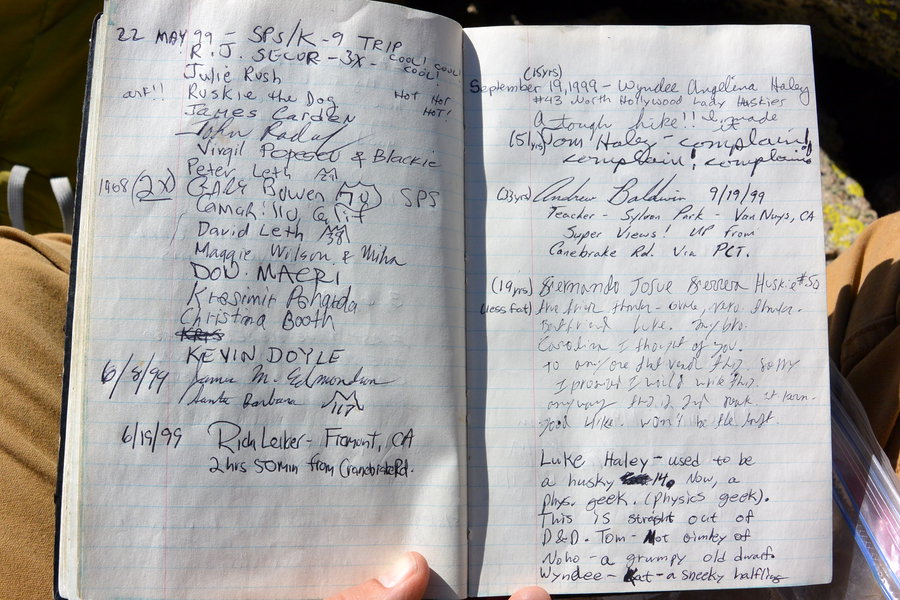 22 MAY 99 - SPS/K-9 TRIP
R.J. SECOR - 3X - COOL! COOL!
COOL!
Julie Rush
ark!! Ruskie the Dog HOT HOT
HOT!
James Carden
John
Virgil Popescu & Blackie
Peter Leth
1968 (2X) GARY Bowen SPS
Camarillo Calif
David Leth
Maggie Wilson & Miha
DOU. MACRI
Krasimir
Christina Booth
KEVIN DOYLE
6/8/99 James M. Edmondson
Santa Barbara 117
6/19/99 Rich Leiker - Fremont, CA
2 hrs 50 min from Canebrake Rd.
(15yrs)
September 19, 1999 - Wyndee Angelina Haley
#43 North Hollywood Lady Huskies
A tough hike!! I made it
(51yrs) Tom Haley - complain!
complain! complain
(33yrs) Andrew Baldwin 9/19/99
Teacher - Sylvan Park - Van Nuys, CA
Super Views! UP From
Canebrake Rd. Via PCT.
(19yrs) Fernando Josue Herrera Huskie #50
(less fat)
Luke. my bro.
Carolina I thought of you.
to anyone that read this. sorry
I promised I would write this.
anyway this is 2nd peak
good hike. won't be the last.
Luke Haley - used to be
a husky 14. Now, a
phys. geek. (physics geek).
This is straight out of
D&D. Tom - Not Gimley of
Noho - a grumpy old dwarf.
Wyndee - Kat - a sneeky halfling